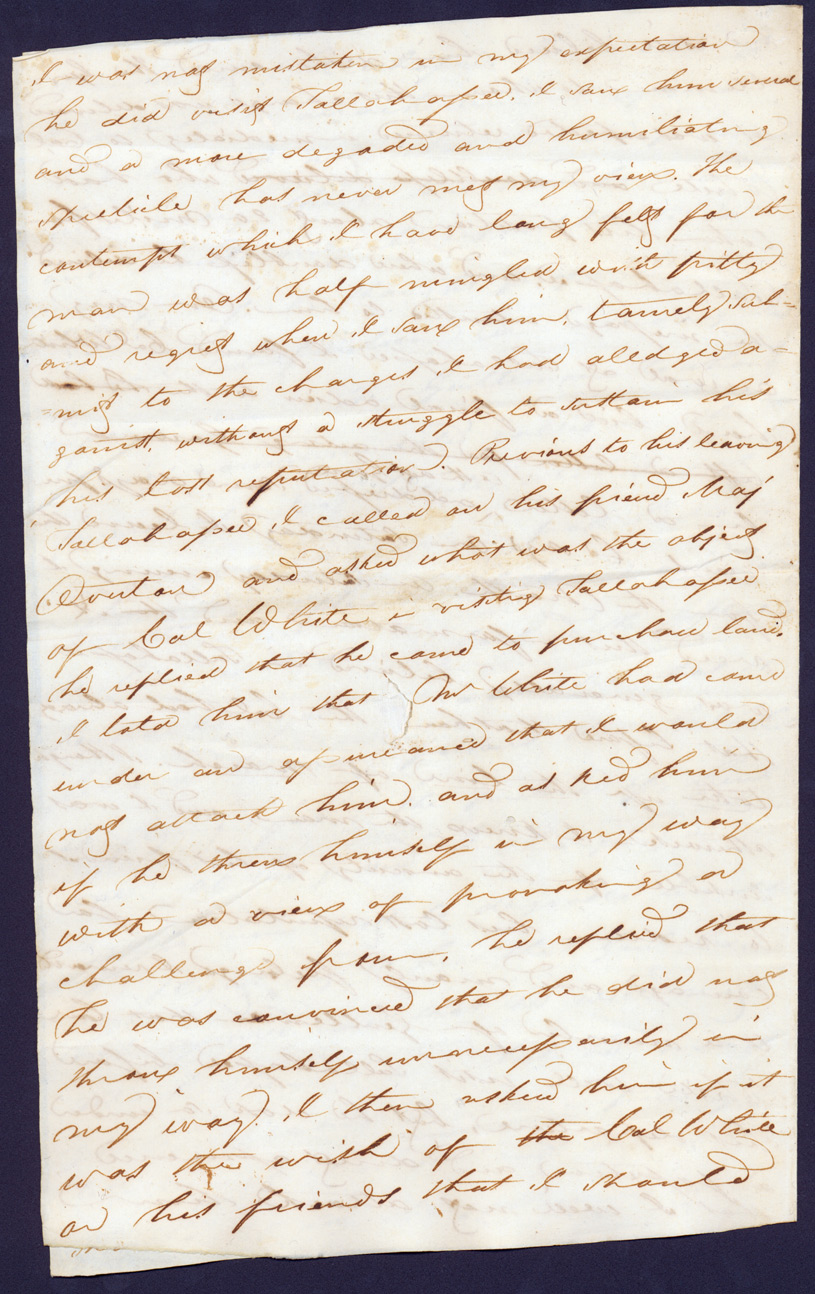 I was not mistaken in my expectation
he did visit Tallahassee. I saw him several
and a more degaded and humiliating
specticle has never met my view. The
contempt which I have long felt for the
man was half mingled with pitty
and regret when I saw him, tamely sub-
=mit to the charges I had alledged a-
gainst, without a struggle to sustain his
his lost reputation. Previous to his leaving
Tallahassee I called on his friend Maj
Overton and asked what was the object
of Col White in visiting Tallahassee
he replied that he came to purchase land.
I told him that Mr White had come
under an assurance that I would
not attack him. and asked him
if he threw himself in my way
with a view of provoking a
challenge from, he replied that
he was convinced that he did not
throw himself unnecessarily in
my way. I then asked him if it
was the wish of the Col White
or his friends that I should